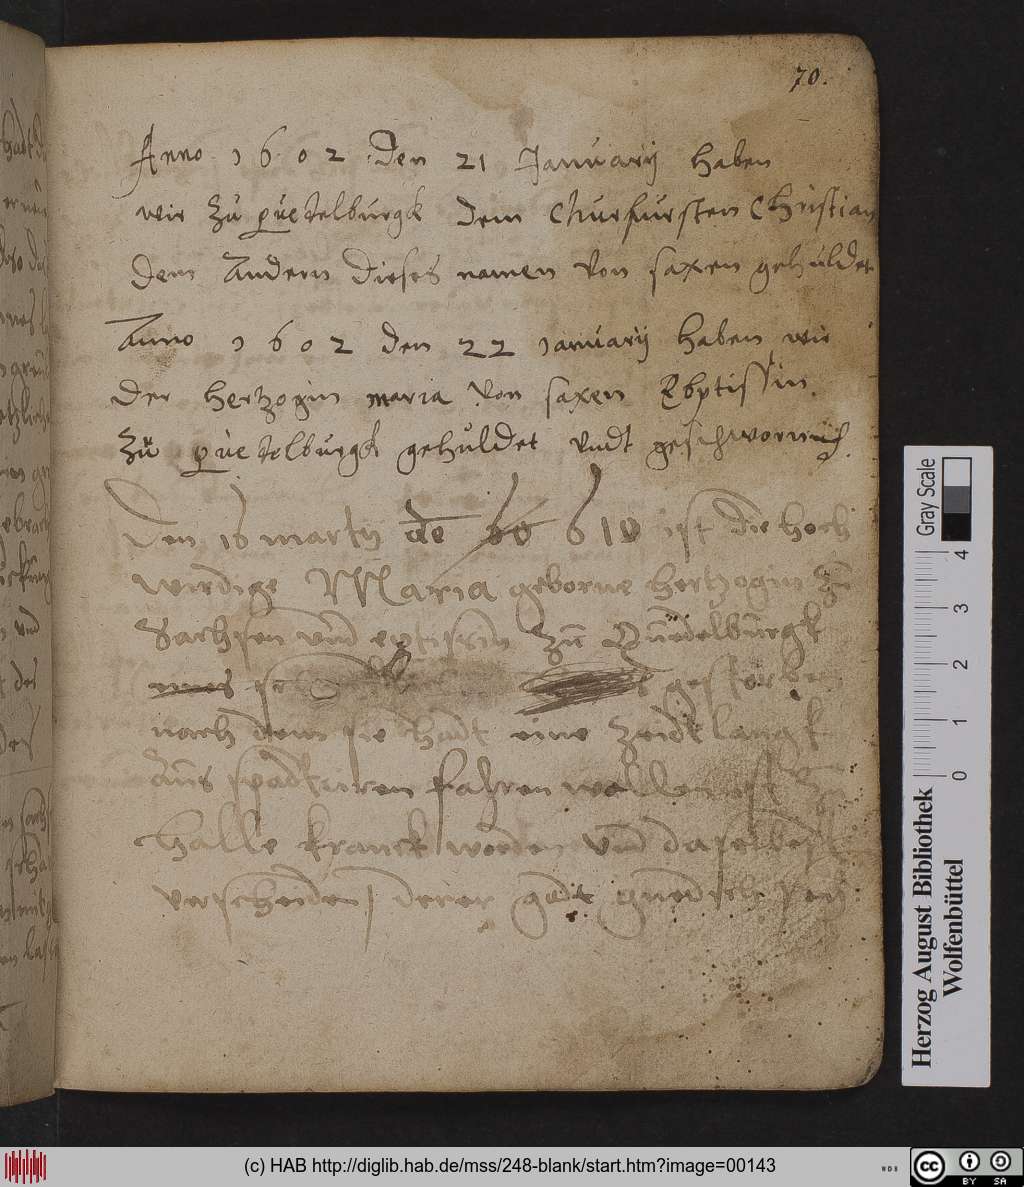 70.
Anno 1602 den 21 Januarÿ haben
wir zu quetelburgk dem Churfursten Christian
dem Andern dieses namen von saxen gehuldet
Anno 1602 den 22 januarÿ haben wir
der hertzogin maria von saxen Ebptissin
zu quetelburgk gehuldet undt geschworn
Den 16 marty de 610 ist die hoch
wirdige Maria geborne hertzogin zu
Sachsen und eptissin zu Quedelburgk
gestorben
nach dem sie hadt eine zeidt langk
Aus spadtziren fahren wollen ist zu
halle kranck worden und daselbest
verscheiden derer godt genedich sey
Herzog August Bibliothek
Wolfenbüttel
Gray Scale
0 1 2 3 4
(c) HAB http://diglib.hab.de/mss/248-blank/start.htm?image=00143
WDB
cc BY SA